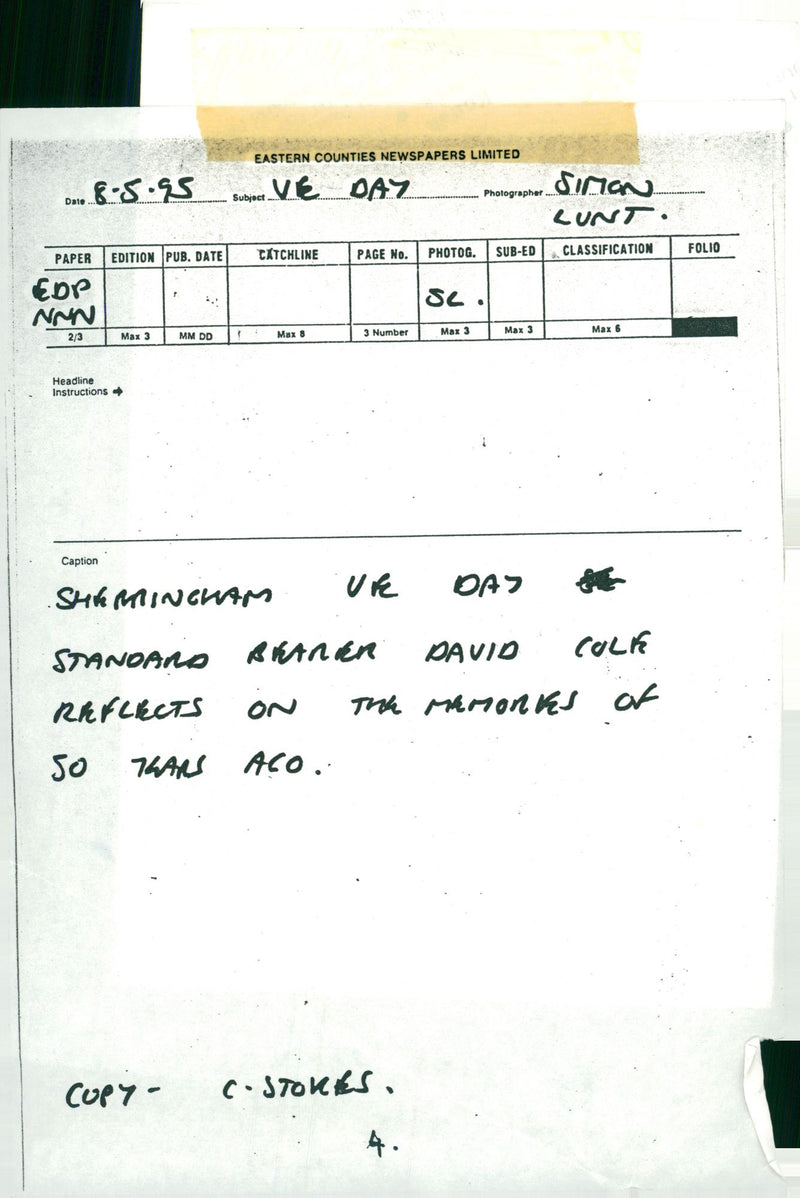 EASTERN COUNTIES NEWSPAPERS LIMITED
Date 8-5-95 Subject VE DAY Photographer SIMON
LUNT.
PAPER EDITION PUB. DATE CATCHLINE PAGE No. PHOTOG. SUB-ED CLASSIFICATION FOLIO
EDP
NNN SL.
2/3 Max 3 MM DD Max 8 3 Number Max 3 Max 3 Max 6
Headline
Instructions →
Caption
SHERRINGHAM VE DAY
STANDARD BEARER DAVID COLE
REFLECTS ON THE MEMORIES OF
50 YEARS AGO.
COPY - C. STOKES.
4.